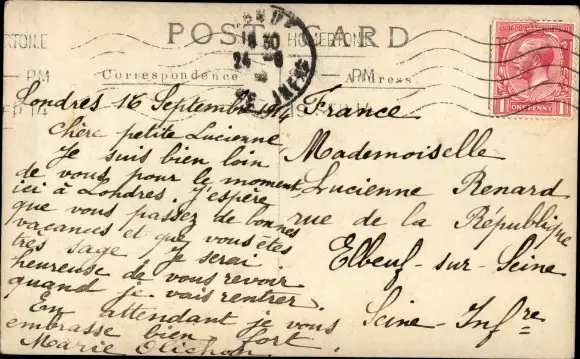 POST CARD
HOMERTON.E
PM
Correspondence
Address
18 30
24 -9
SEINE INFRE
ONE PENNY
Londres 16 Septembre 1914
Chère petite Lucienne
Je suis bien loin
de vous pour le moment
ici à Londres. J'espère
que vous passez de bonnes
vacances et que vous êtes
très sage. Je serai
heureuse de vous revoir
quand je vais rentrer.
En attendant je vous
embrasse bien fort
Marie
France
Mademoiselle
Lucienne Renard
rue de la République
Elbeuf-sur-Seine
Seine-Infre